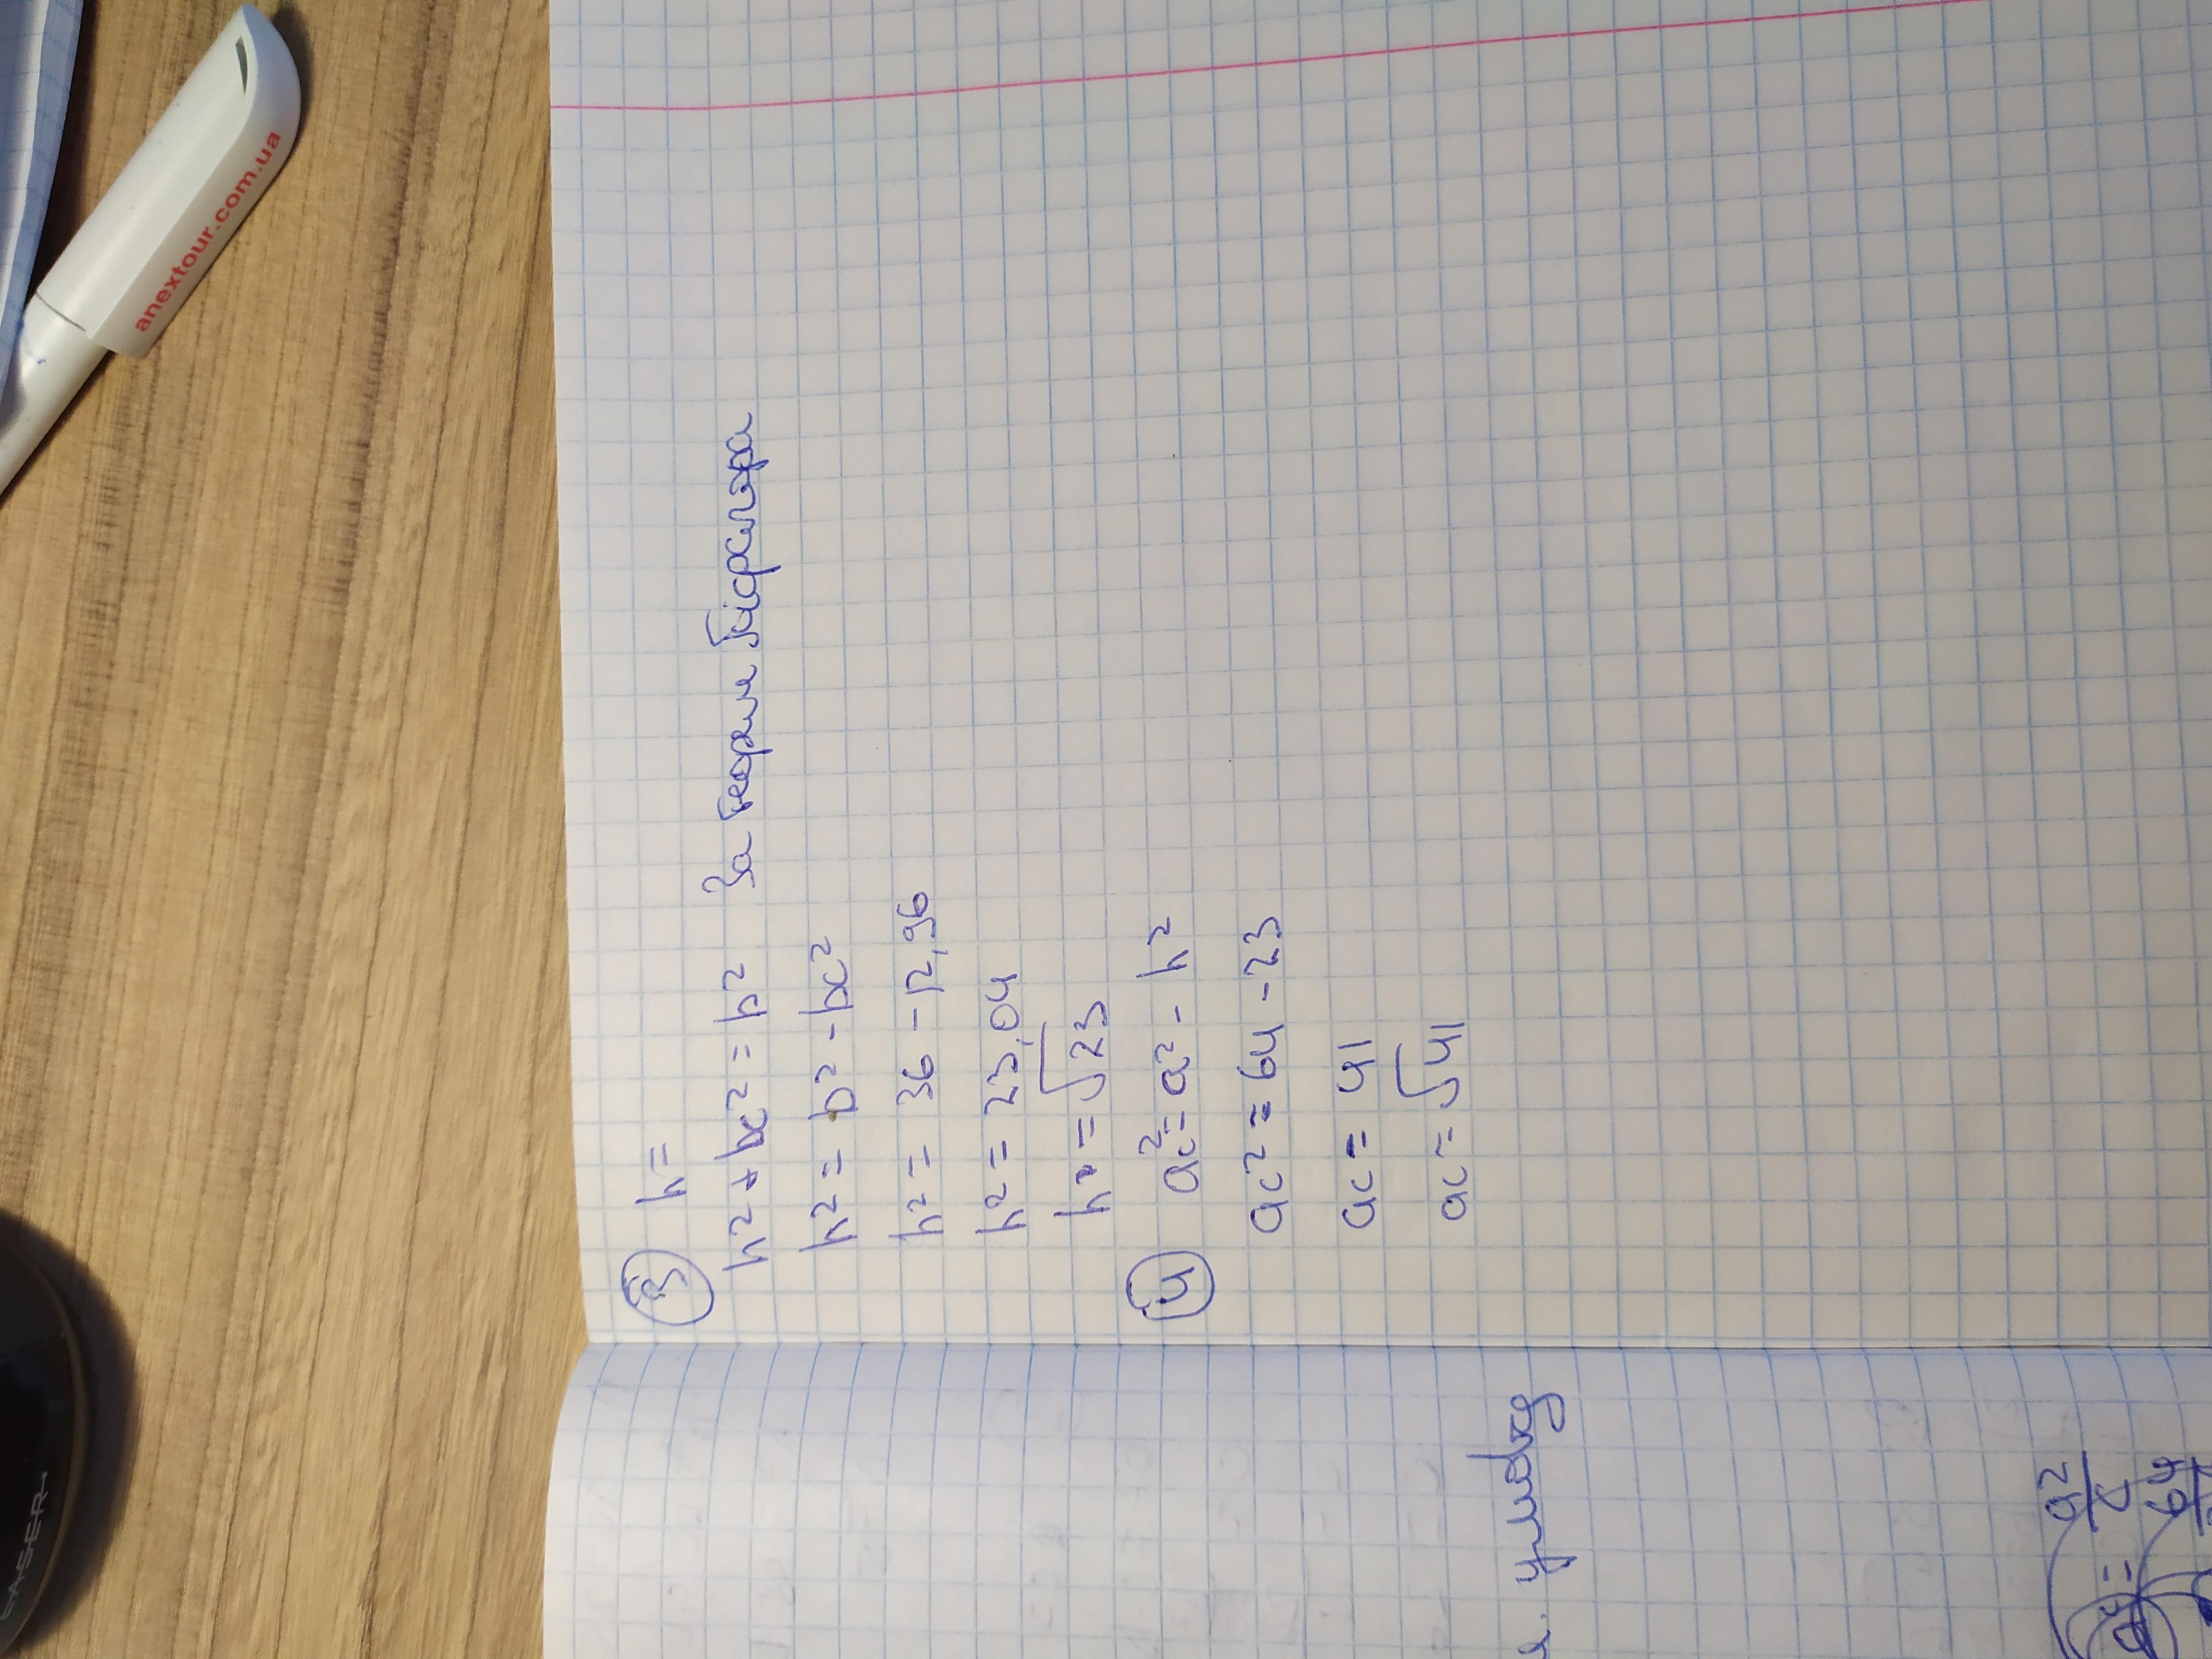 anextour.com.ua
③ h =
h² + bc² = h² За теорем Піфагора
h² = b² - bc²
h² = 36 - 12,96
h² = 23,04
h = √23
④ ac² = a² - h²
ac² = 64 - 23
ac = 41
ac = √41
a²
c
64